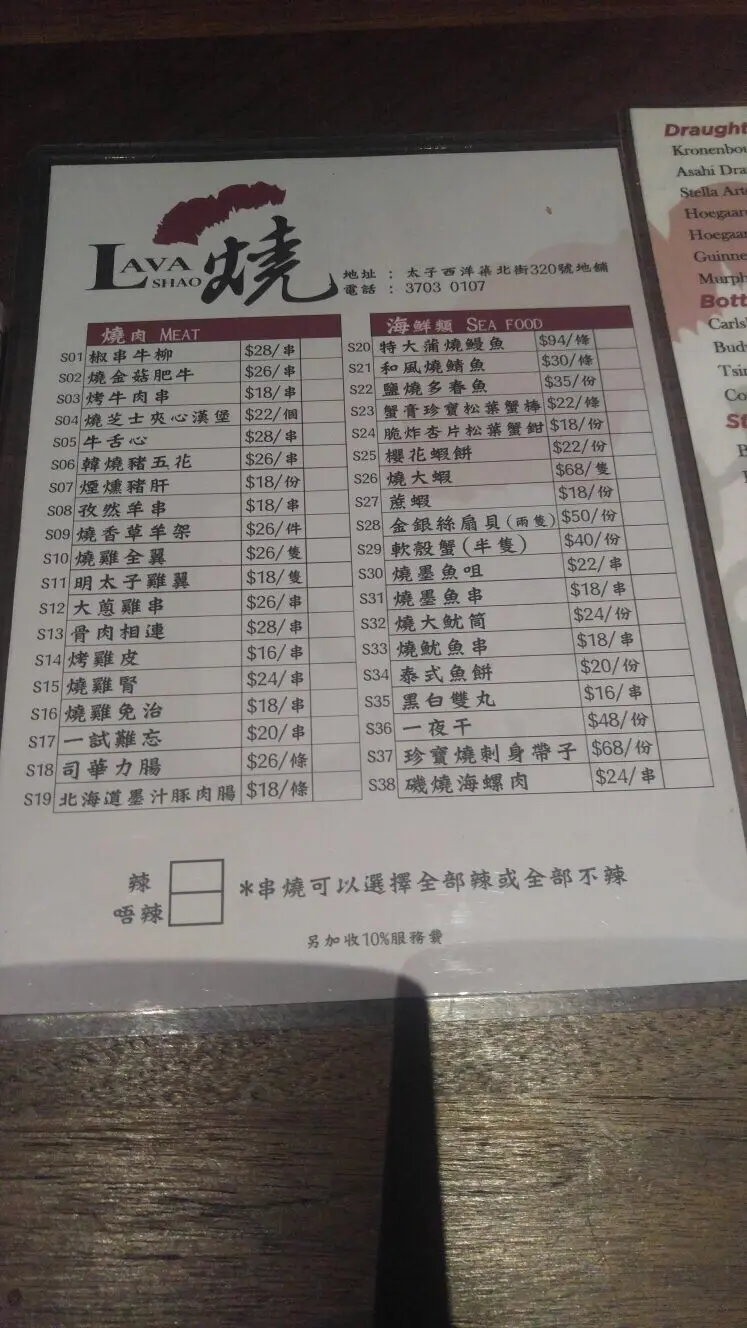 LAVA SHAO 燒
地址 : 太子西洋菜北街320號地舖
電話 : 3703 0107
燒肉 MEAT
S01 椒串牛柳 $28/串
S02 燒金菇肥牛 $26/串
S03 烤牛肉串 $18/串
S04 燒芝士夾心漢堡 $22/個
S05 牛舌心 $28/串
S06 韓燒豬五花 $26/串
S07 煙燻豬肝 $18/份
S08 孜然羊串 $18/串
S09 燒香草羊架 $26/件
S10 燒雞全翼 $26/隻
S11 明太子雞翼 $18/隻
S12 大蔥雞串 $26/串
S13 骨肉相連 $28/串
S14 烤雞皮 $16/串
S15 燒雞腎 $24/串
S16 燒雞免治 $18/串
S17 一試難忘 $20/串
S18 司華力腸 $26/條
S19 北海道墨汁豚肉腸 $18/條
海鮮類 SEA FOOD
S20 特大蒲燒鰻魚 $94/條
S21 和風燒鯖魚 $30/條
S22 鹽燒多春魚 $35/份
S23 蟹膏珍寶松葉蟹棒 $22/條
S24 脆炸杏片松葉蟹鉗 $18/份
S25 櫻花蝦餅 $22/份
S26 燒大蝦 $68/隻
S27 蔗蝦 $18/份
S28 金銀絲扇貝(兩隻) $50/份
S29 軟殼蟹(半隻) $40/份
S30 燒墨魚咀 $22/串
S31 燒墨魚串 $18/串
S32 燒大魷筒 $24/份
S33 燒魷魚串 $18/串
S34 泰式魚餅 $20/份
S35 黑白雙丸 $16/串
S36 一夜干 $48/份
S37 珍寶燒刺身帶子 $68/份
S38 磯燒海螺肉 $24/串
辣
唔辣
*串燒可以選擇全部辣或全部不辣
另加收10%服務費
Draught
Kronenbou
Asahi Dra
Stella Art
Hoegaar
Hoegaar
Guinne
Murph
Bott
Carls
Bud
Tsi
Co
St